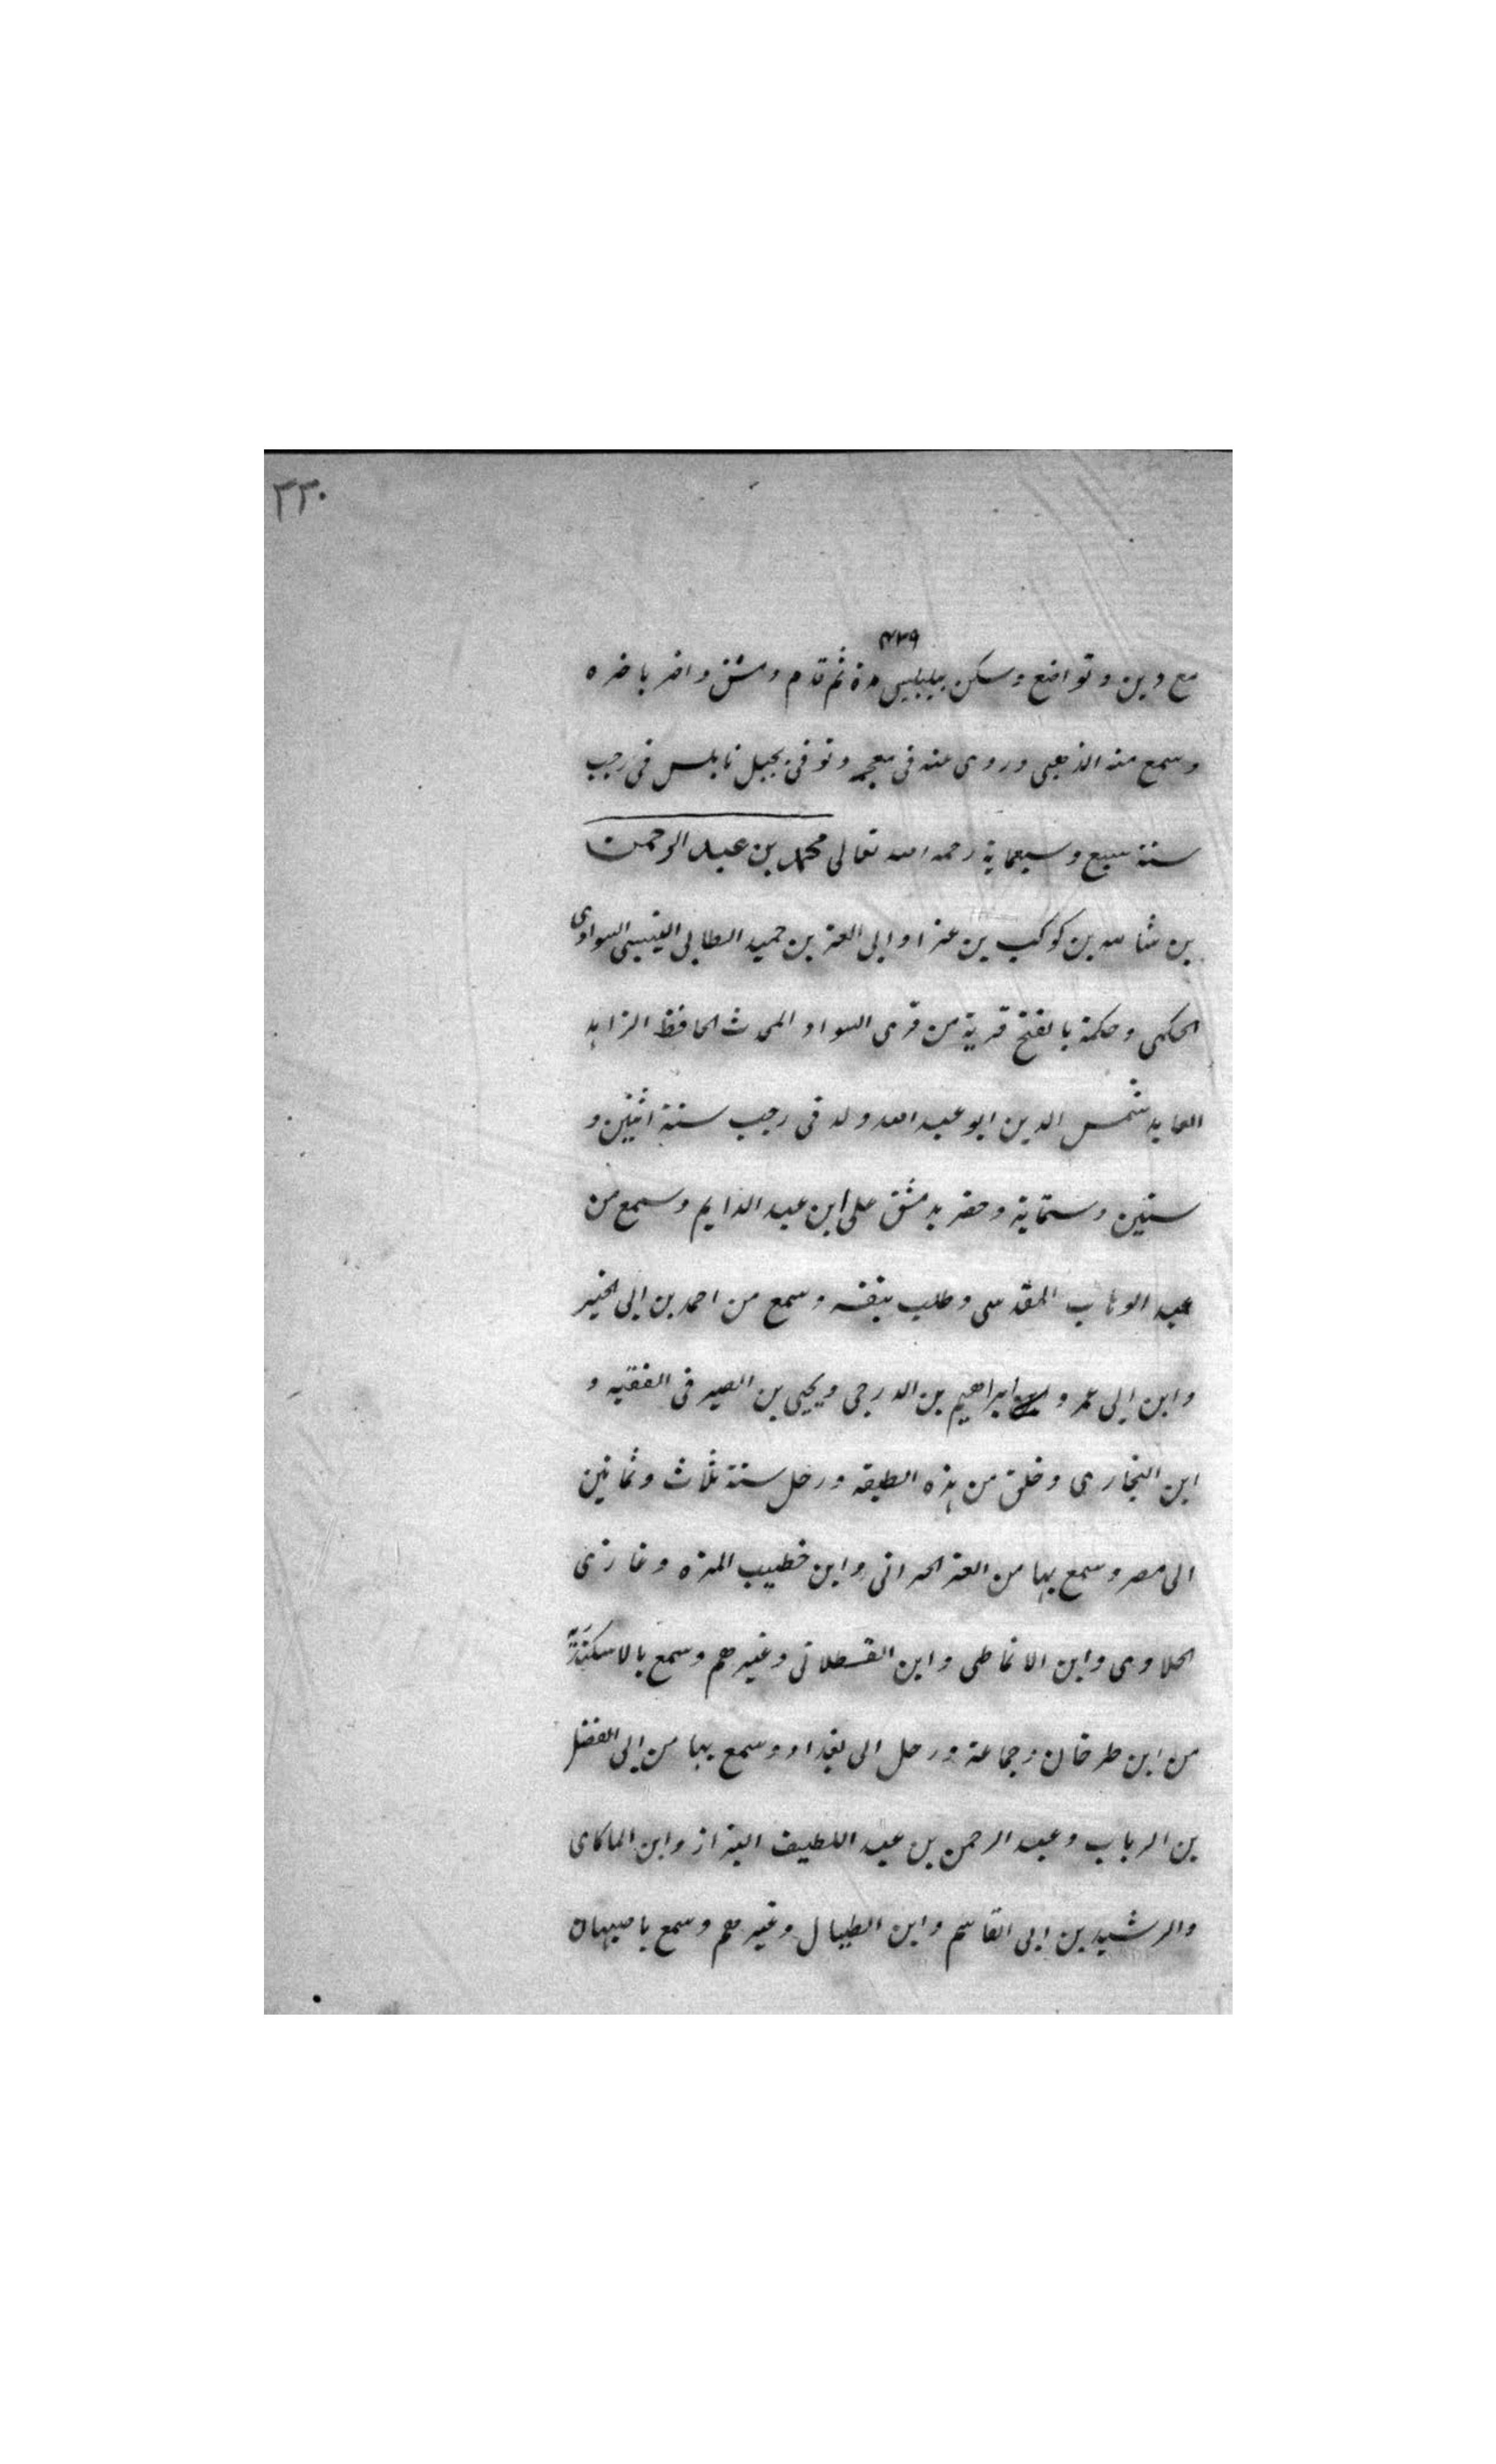 ٣٣٠
٤٣٩
مع دين وتواضع وسكن ببلبيس مدة ثم قدم دمشق واضر باخره
وسمع منه الذهبى وروى عنه فى معجمه وتوفى بجبل نابلس فى رجب
سنة سبع وسبعماية رحمه الله تعالى محمد بن عبد الرحمن
بن شامه بن كوكب بن عز اوابى العز بن حميد الطائى السوادى
الحكمى وحكمة بالفتح قرية من قرى السواد المحدث الحافظ الزاهد
العابد شمس الدين ابو عبد الله ولد فى رجب سنة اثنين و
ستين وستماية وحضر بدمشق على ابن عبد الدايم وسمع من
عبد الوهاب المقدسى وطلب بنفسه وسمع من احمد بن ابى الخير
وابن ابى عمر و ابراهيم بن الدرجى ويحيى بن الصيرفى الفقيه و
ابن البخارى وخلق من هذه الطبقه ورحل سنة ثلاث وثمانين
الى مصر وسمع بها من العز الحرانى وابن خطيب المزه وغازى
الحلاوى وابن الانماطى وابن القسطلانى وغيرهم وسمع بالاسكندرية
من ابن طرخان وجماعة ورحل الى بغداد وسمع بها من ابى الفضل
بن الرباب وعبد الرحمن بن عبد اللطيف البزاز وابن الماكاى
والرشيد بن ابى القاسم وابن الطبال وغيرهم وسمع باصبهان